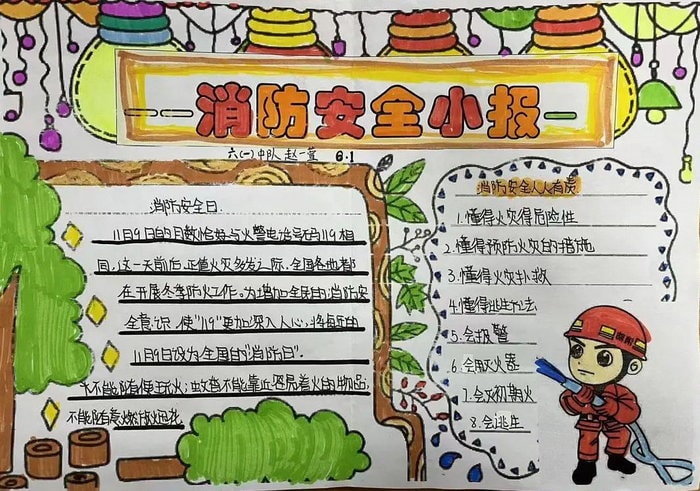 消防安全小报
六(一)中队 赵一萱 8.1
消防安全日
11月9日的月数恰好与火警电话号码119相
同,这一天前后,正值火灾多发之际,全国各地都
在开展冬季防火工作。为增加全民的消防安
全意识,使"119"更加深入人心,将每年的
11月9日设为全国的"消防日".
不能随便玩火;蚊香不能靠近容易着火的物品;
不能随意燃放烟花
消防安全人人有责
1.懂得火灾得危险性
2.懂得预防火灾的措施
3.懂得火灾扑救
4.懂得逃生方法
5.会报警
6.会用灭火器
7.会灭初期火
8.会逃生